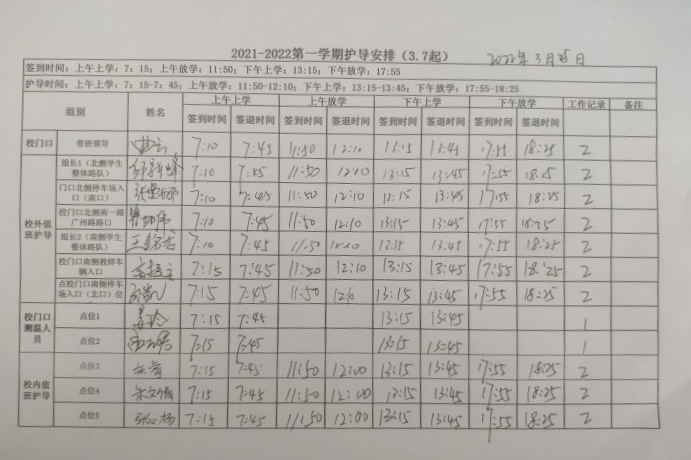 2021-2022第一学期护导安排（3.7起） 2022年3月25日
签到时间：上午上学：7：15；上午放学：11:50；下午上学：13:15；下午放学：17:55
护导时间：上午上学：7：15-7：45；上午放学：11:50-12:10；下午上学：13:15-13:45；下午放学：17:55-18:25
组别 姓名 上午上学 上午放学 下午上学 下午放学 工作记录 备注
签到时间 签退时间 签到时间 签退时间 签到时间 签退时间 签到时间 签退时间
校门口 带班领导 7:10 7:45 11:50 12:10 13:15 13:45 17:55 18:25 2
校外值班护导
组长1（北侧学生整体路队） 7:10 7:45 11:50 12:10 13:15 13:45 17:55 18:25 2
门口北侧停车场入口（南口） 7:10 7:45 11:50 12:10 13:15 13:45 17:55 18:25 2
校门口北侧南一路广州路路口 7:10 7:45 11:50 12:10 13:15 13:45 17:55 18:25 2
组长2（南侧学生整体路队） 7:10 7:45 11:50 12:10 13:15 13:45 17:55 18:25 2
校门口南侧教师车辆入口 7:15 7:45 11:50 12:10 13:15 13:45 17:55 18:25 2
点校门口南侧停车场入口（北口）位 7:15 7:45 11:50 12:10 13:15 13:45 17:55 18:25 2
校门口测温人员
点位1 7:15 7:45 13:15 13:45 1
点位2 7:15 7:45 13:15 13:45 1
校内值班护导
点位3 7:15 7:45 11:50 12:00 13:15 13:45 17:55 18:25 2
点位4 7:15 7:45 11:50 12:00 13:15 13:45 17:55 18:25 2
点位5 7:15 7:45 11:50 12:00 13:15 13:45 17:55 18:25 2